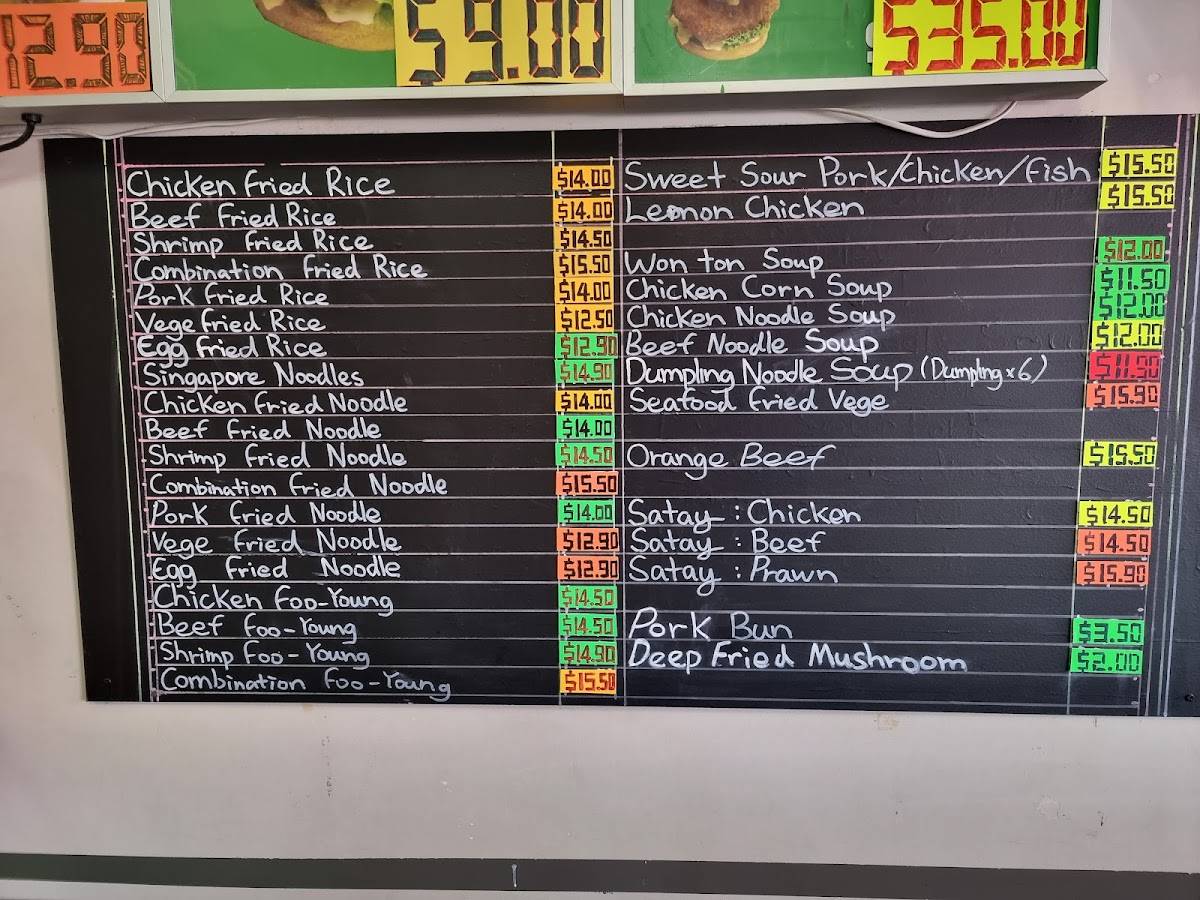 12.90
$9.00
$35.00
Chicken Fried Rice $14.00
Beef Fried Rice $14.00
Shrimp Fried Rice $14.50
Combination Fried Rice $15.50
Pork Fried Rice $14.00
Vege Fried Rice $12.50
Egg Fried Rice $12.90
Singapore Noodles $14.90
Chicken Fried Noodle $14.00
Beef Fried Noodle $14.00
Shrimp Fried Noodle $14.50
Combination Fried Noodle $15.50
Pork Fried Noodle $14.00
Vege Fried Noodle $12.90
Egg Fried Noodle $12.90
Chicken Foo-Young $14.50
Beef Foo-Young $14.50
Shrimp Foo-Young $14.90
Combination Foo-Young $15.50
Sweet Sour Pork/Chicken/Fish $15.50
Lemon Chicken $15.50
Won ton Soup $12.00
Chicken Corn Soup $11.50
Chicken Noodle Soup $12.00
Beef Noodle Soup $12.00
Dumpling Noodle Soup (Dumpling x 6) $11.90
Seafood Fried Vege $15.90
Orange Beef $15.50
Satay : Chicken $14.50
Satay : Beef $14.50
Satay : Prawn $15.90
Pork Bun $3.50
Deep Fried Mushroom $2.00